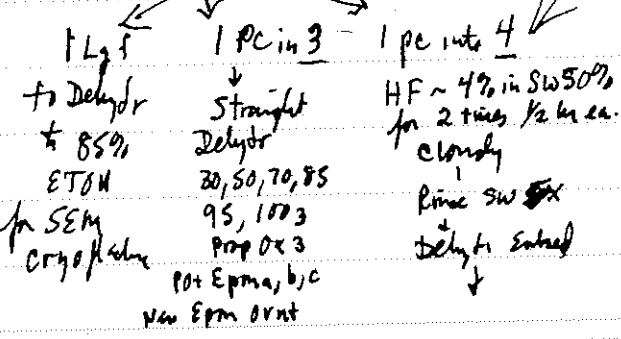 1 Lg f
to Dehydr
to 85%
ETOH
for SEM
Cryofracture
1 pc in 3
Straight
Dehydr
30, 50, 70, 85
95, 100 3
Prop Ox 3
Pot Epm a, b, c
New Epm Ovnt
1 pc into 4
HF ~ 4% in SW 50%
for 2 times 1/2 hr ea.
cloudy
Rinse SW 5X
Dehydr Embed